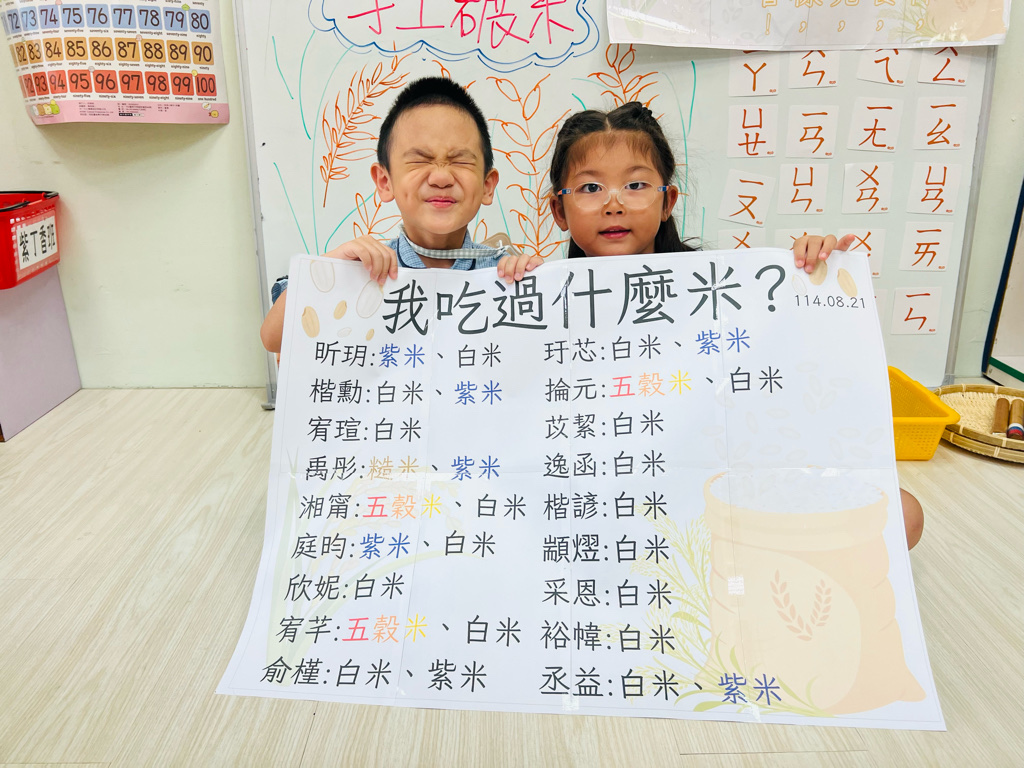 72 73 74 75 76 77 78 79 80
82 83 84 85 86 87 88 89 90
92 93 94 95 96 97 98 99 100
手工碾米
ㄚ ㄢ ㄟ ㄥ
ㄩㄝ ㄧㄢ ㄧㄤ ㄧㄠ
ㄧㄡ ㄩㄣ ㄨㄣ ㄩㄢ
ㄧㄞ
ㄧㄣ
紫丁香班
我吃過什麼米？
114.08.21
昕玥:紫米、白米
楷勳:白米、紫米
宥瑄:白米
禹彤:糙米、紫米
湘甯:五穀米、白米
庭昀:紫米、白米
欣妮:白米
宥芊:五穀米、白米
俞槿:白米、紫米
玗芯:白米、紫米
掄元:五穀米、白米
苡絜:白米
逸函:白米
楷諺:白米
顓熠:白米
采恩:白米
裕幃:白米
丞益:白米、紫米